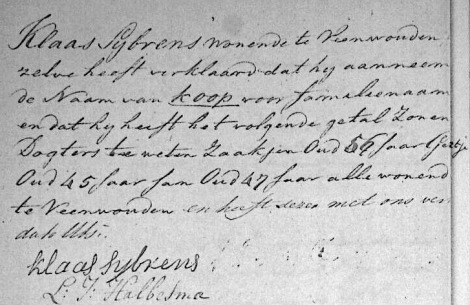 Klaas Sybrens wonende te Veenwouden
zelve heeft verklaard dat hij aanneem
de Naam van koop voor familienaam
en dat hij heeft het volgende getal Zonen
Dogters te weten Zaakjen Oud 56 Jaar
Oud 45 Jaar Jan Oud 47 Jaar alle wonend
te Veenwouden en heeft dezes met ons ver
Klaas Sybrens
L. J. Halbesma